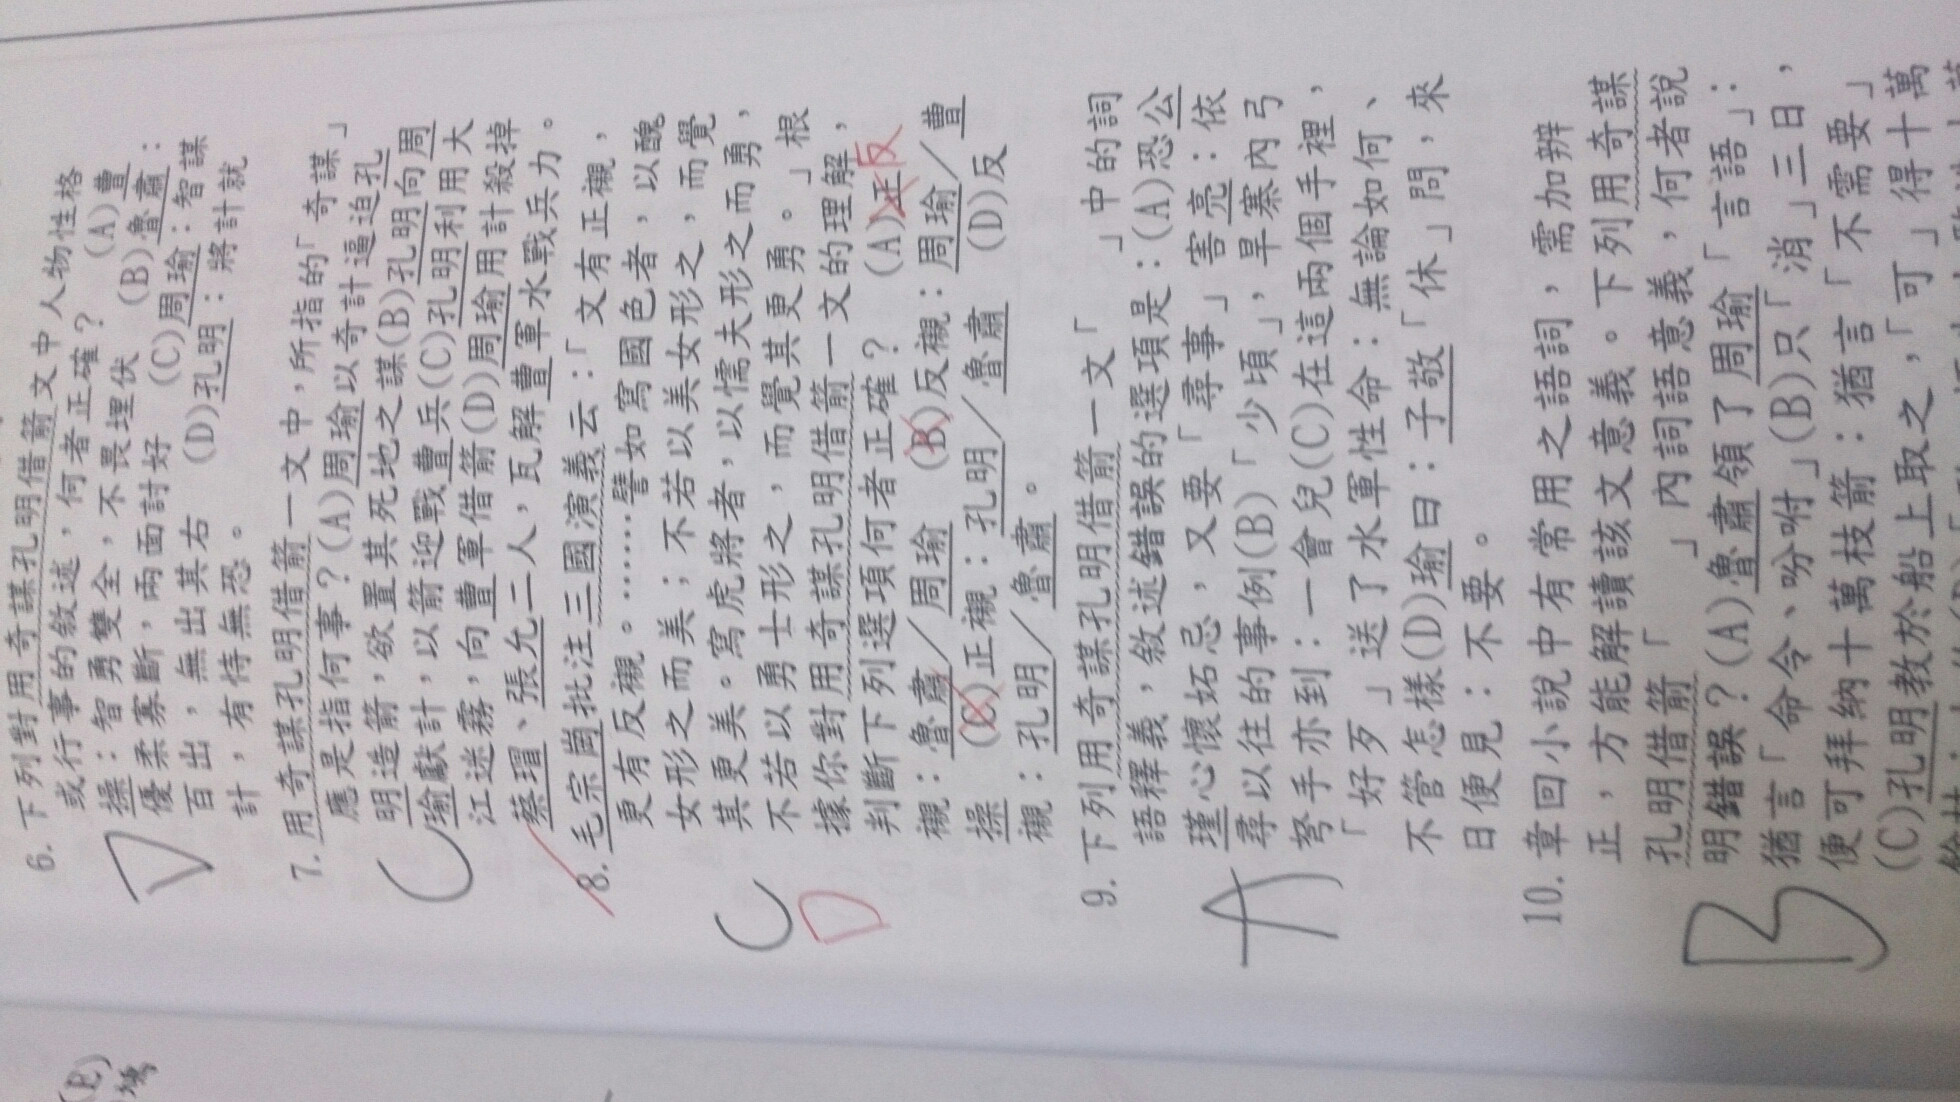 6. 下列對用奇謀孔明借箭文中人物性格
或行事的敘述，何者正確？ (A)曹
操：智勇雙全，不畏埋伏 (B)魯肅：
優柔寡斷，兩面討好 (C)周瑜：智謀
百出，無出其右 (D)孔明：將計就
計，有恃無恐。
D
7. 用奇謀孔明借箭一文中，所指的「奇謀」
應是指何事？(A)周瑜以奇計逼迫孔
明造箭，欲置其死地之謀(B)孔明向周
瑜獻計，以箭迎戰曹兵(C)孔明利用大
江迷霧，向曹軍借箭(D)周瑜用計殺掉
蔡瑁、張允二人，瓦解曹軍水戰兵力。
C
8. 毛宗崗批注三國演義云：「文有正襯，
更有反襯。……譬如寫國色者，以醜
女形之而美；不若以美女形之，而覺
其更美。寫虎將者，以懦夫形之而勇，
不若以勇士形之，而覺其更勇。」根
據你對用奇謀孔明借箭一文的理解，
判斷下列選項何者正確？ (A)正反
襯：魯肅／周瑜 (B)反襯：周瑜／曹
操 (C)正襯：孔明／魯肅 (D)反
襯：孔明／魯肅。
C
D
9. 下列用奇謀孔明借箭一文「 」中的詞
語釋義，敘述錯誤的選項是：(A)恐公
瑾心懷妬忌，又要「尋事」害亮：依
尋以往的事例(B)「少頃」，旱寨內弓
弩手亦到：一會兒(C)在這兩個手裡，
「好歹」送了水軍性命：無論如何、
不管怎樣(D)瑜曰：子敬「休」問，來
日便見：不要。
A
10. 章回小說中有常用之語詞，需加辨
正，方能解讀該文意義。下列用奇謀
孔明借箭「 」內詞語意義，何者說
明錯誤？(A)魯肅領了周瑜「言語」：
猶言「命令、吩咐」(B)只「消」三日，
便可拜納十萬枝箭：猶言「不需要」
(C)孔明教於船上取之，「可」得十萬
B
(E)